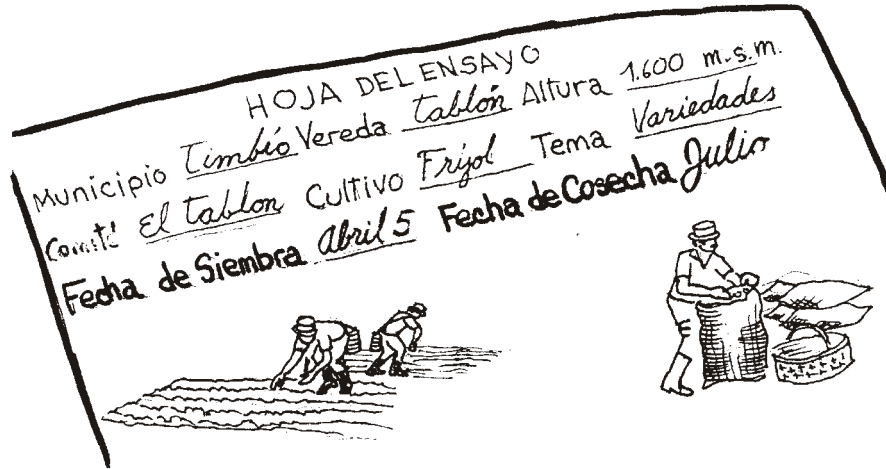 HOJA DEL ENSAYO
Municipio Timbío Vereda tablón Altura 1.600 m.s.m.
Comité El tablon Cultivo Frijol Tema Variedades
Fecha de Siembra abril 5 Fecha de Cosecha Julio